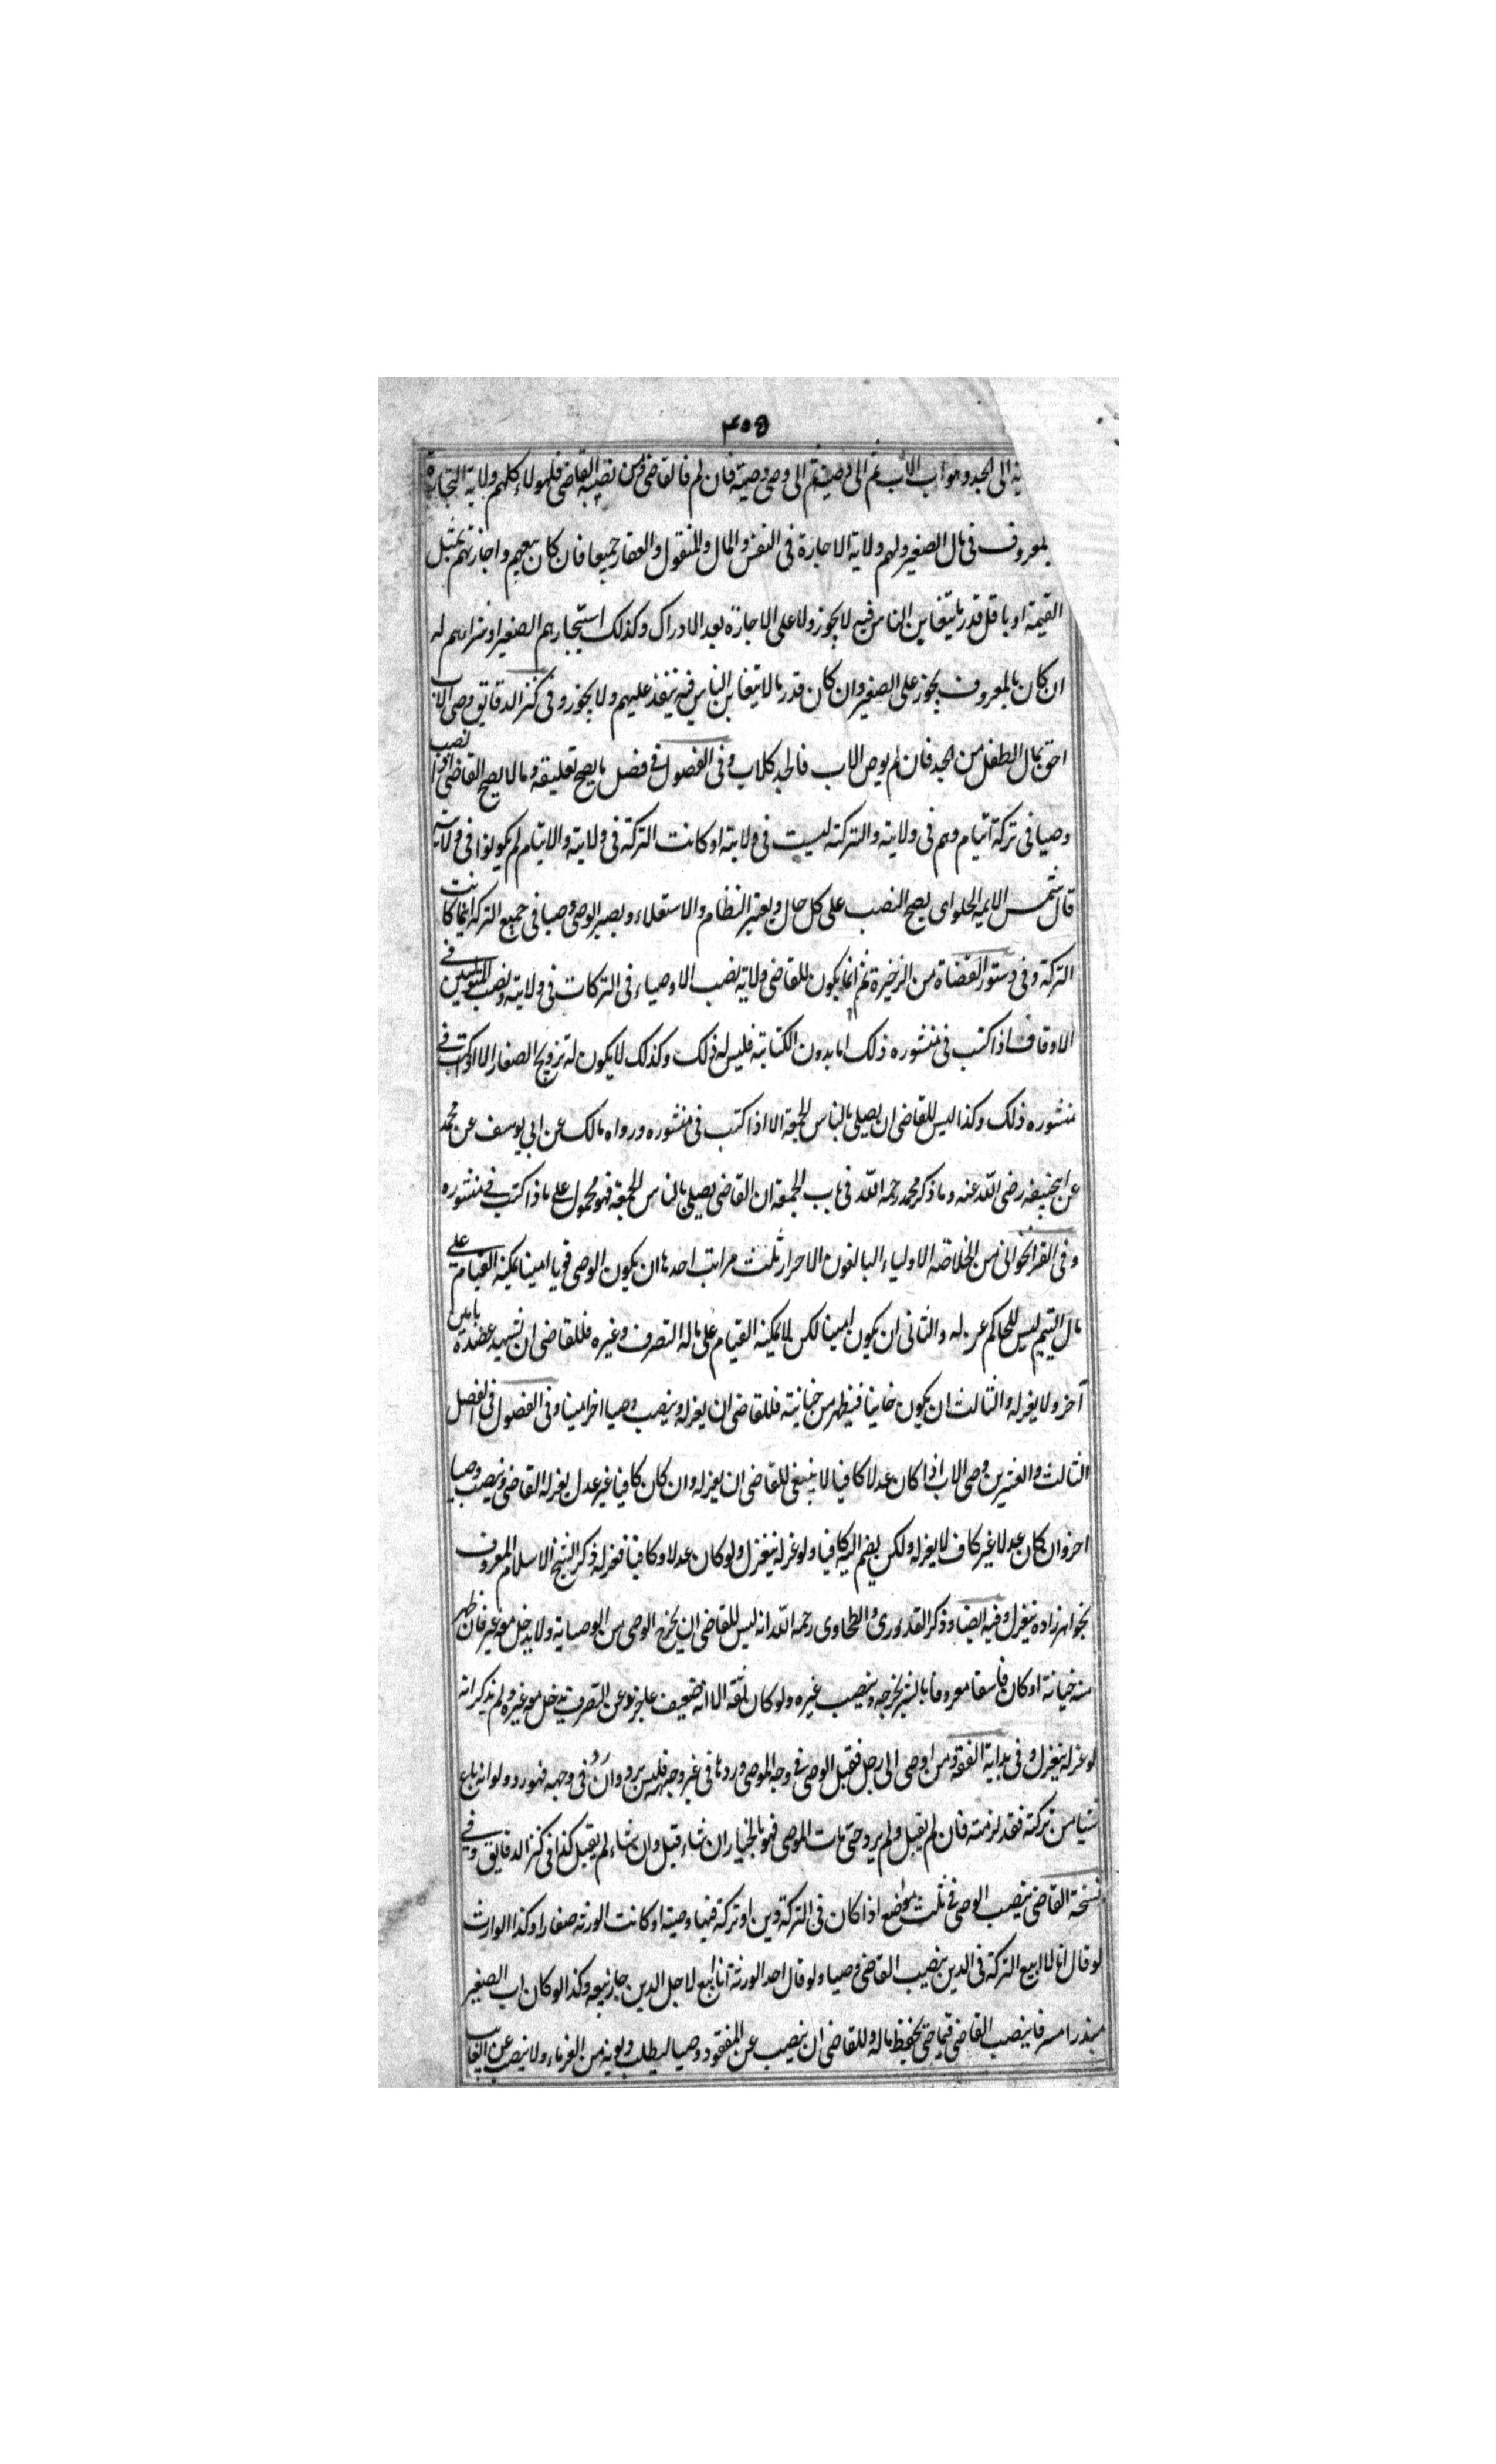 ٤٥٥
ية الى الجد وهو اب الاب ثم الى وصيه ثم الى وصى وصيه فان لم فالقاضى ومن نصبه القاضى فلهولاء كلهم ولاية التجارة
بالمعروف فى مال الصغير ولهم ولاية الاجارة فى النفس والمال والمنقول والعقار جميعا فان كان بيعهم واجازتهم بمثل
القيمة او باقل قدر ما يتغابن الناس فيه لا يجوز ولا على الاجازة بعد الادراك وكذلك استيجارهم الصغير او شراءهم له
ان كان بالمعروف يجوز على الصغير وان كان قدر ما لا يتغابن الناس فيه ينفذ عليهم ولا يجوز وفى كنز الدقايق وصى الاب
احق بمال الطفل من الجد فان لم يوص الاب فالجد كالاب وفى الفصول فى فصل ما يصح تعليقه وما لا يصح القاضى اذا نصب
وصيا فى تركة ايتام وهم فى ولايته والتركة ليست فى ولايته او كانت التركة فى ولايته والايتام لم يكونوا فى ولايته
قال شمس الايمه الحلواى يصح النصب على كل حال ويعتبر النظام والاستعلاء ويصير الوصى وصيا فى جميع التركة اينما كانت
التركة وفى دستور القضاة من الذخيرة ثم انما يكون للقاضى ولاية نصب الاوصياء فى التركات فى ولايته ونصب المتوليين فى
الاوقاف اذا كتب فى منشوره ذلك اما بدون الكتابة فليس له ذلك وكذلك لا يكون له تزويج الصغار الا اذا كتب فى
منشوره ذلك وكذا ليس للقاضى ان يصلى بالناس الجمعة الا اذا كتب فى منشوره ورواه مالك عن ابى يوسف عن محمد
عن ابيحنيفه رضى الله عنه وما ذكر محمد رحمه الله فى باب الجمعة ان القاضى يصلى بالناس الجمعة فهو محمول على ما اذا كتب فى منشوره
وفى القراخوانى من الخلاصه الاولياء البالغون الاحرار ثلث مراتب احدها ان يكون الوصى قويا امينا يمكنه القيام على
مال اليتيم ليس للحاكم عزله والثانى ان يكون امينا لكن لا يمكنه القيام على ماله التصرف وغيره فللقاضى ان يشهيد عضده بامين
آخر ولا يعزله والثالث ان يكون خاينا فيظهر من خيانته فللقاضى ان يعزله وينصب وصيا اخر امينا وفى الفصول فى الفصل
الثالث والعشرين وصى الاب اذا كان عدلا كافيا لا ينبغى للقاضى ان يعزله وان كان كافيا غير عدل يعزله القاضى وينصب وصيا
اخر وان كان عدلا غير كاف لا يعزله ولكن يضم اليه كافيا ولو عزله ينعزل ولو كان عدلا وكافيا فعزله ذكر الشيخ الاسلام المعروف
بخواهرزاده ينعزل وفيه ايضا وذكر القدورى والطحاوى رحمه الله انه ليس للقاضى ان يخرج الوصى من الوصاية ولا يدخل معه غيره فان ظهر
منه خيانة او كان فاسقا معروفا بالشر يخرجه وينصب غيره ولو كان ثقه الا انه ضعيف عاجز عن التصرف يدخل معه غيره ولم يذكر انه
لو عزله ينعزل وفى بداية الفقه ومن اوصى الى رجل فقبل الوصى فى وجه الموصى وردها فى غير وجهه فليس برد وان رد فى وجهه فهو رد ولو انه باع
شيئا من تركته فقد لزمته فان لم يقبل ولم يرد حتى مات الموصى فهو بالخيار ان شاء قبل وان شاء لم يقبل كذا فى كنز الدقايق وفى
نسخة القاضى ينصب الوصى فى ثلث مواضع اذا كان فى التركة دين او تركة فيها وصية او كانت الورثه صغارا وكذا الوارث
لو قال انا لا ابيع التركة فى الدين ينصب القاضى وصيا ولو قال احد الورثة انا ابيع لاجل الدين جاز بيعه وكذا لو كان اب الصغير
مبذرا مسرفا ينصب القاضى قيما حتى يحفظ ماله وللقاضى ان ينصب عن المفقود وصيا ليطلب ديونه من الغرماء ولا ينصب عن الغايب